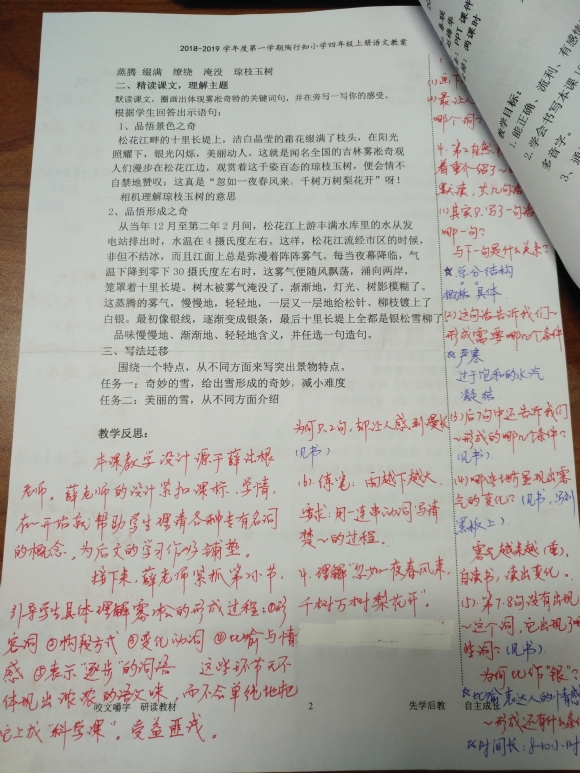 2018-2019 学年度第一学期陶行知小学四年级上册语文教案
蒸腾 缀满 缭绕 淹没 琼枝玉树
二、精读课文，理解主题
默读课文，圈画出体现雾凇奇特的关键词句，并在旁写一写你的感受。
根据学生回答出示语句：
1、品悟景色之奇
松花江畔的十里长堤上，洁白晶莹的霜花缀满了枝头，在阳光
照耀下，银光闪烁，美丽动人。这就是闻名全国的吉林雾凇奇观
人们漫步在松花江边，观赏着这千姿百态的琼枝玉树，便会情不
自禁地赞叹：这真是“忽如一夜春风来，千树万树梨花开”呀！
相机理解琼枝玉树的意思
2、品悟形成之奇
从当年 12 月至第二年 2 月间，松花江上游丰满水库里的水从发
电站排出时，水温在 4 摄氏度左右。这样，松花江流经市区的时候，
非但不结冰，而且江面上总是弥漫着阵阵雾气。每当夜幕降临，气
温下降到零下 30 摄氏度左右时，这雾气便随风飘荡，涌向两岸，
笼罩着十里长堤。树木被雾气淹没了。渐渐地，灯光、树影模糊了。
这蒸腾的雾气，慢慢地，轻轻地，一层又一层地给松针、柳枝镀上了
白银。最初像银线，逐渐变成银条，最后十里长堤上全都是银松雪柳了
品味慢慢地、渐渐地、轻轻地含义，并任选一句造句。
三、写法迁移
围绕一个特点，从不同方面来写突出景物特点。
任务一：奇妙的雪，给出雪形成的奇妙，减小难度
任务二：美丽的雪，从不同方面介绍
教学反思：
本课教学设计源于薛法根
老师。薛老师的设计紧扣课标、学情，
在一开始就帮助学生理清各种专有名词
的概念，为后文的学习作好铺垫。
接下来，薛老师紧抓第2小节，
引导学生具体理解雾凇的形成过程：①形
容词 ②构段方式 ③变化动词 ④比喻与情
感 ⑤表示“逐步”的词语 这些环节无不
体现出浓浓的语文味，而不会单纯地把
它上成“科学课”。受益匪浅。
为何只2句，却让人感到漫长
(见书)
(6) 练笔：雨越下越大
要求：用一连串动词写清
楚~的过程。
4. 理解“忽如一夜春风来，
千树万树梨花开”。
哪个词？
默读，
(1) 其实只写了一句话
哪一句？
与下一句是什么关系？
★总分结构
概括 具体
(2) 这句话告诉我们~
形成需要哪几个条件
☆严寒
过于饱和的水汽
凝结
(3) 后7句中还告诉我们
~形成的哪几个条件？
(见书)
(4) 哪些地方显现出雾
气的变化？(见书，写到
黑板上)
雾气越来越(重)，
自读书，读出变化。
(5) 第7.8句没有出现
~这个词，它出现了哪
些词？(见书)
为何比作“银”？
☆比喻表达人的情感
~形成还有什么条件
☆时间长：8-10小时
教学目标：
1. 能正确、流利、有感情
2. 学会书写本课
多音字。
PPT 课件
两课时
咬文嚼字 研读教材
2
先学后教 自主成长